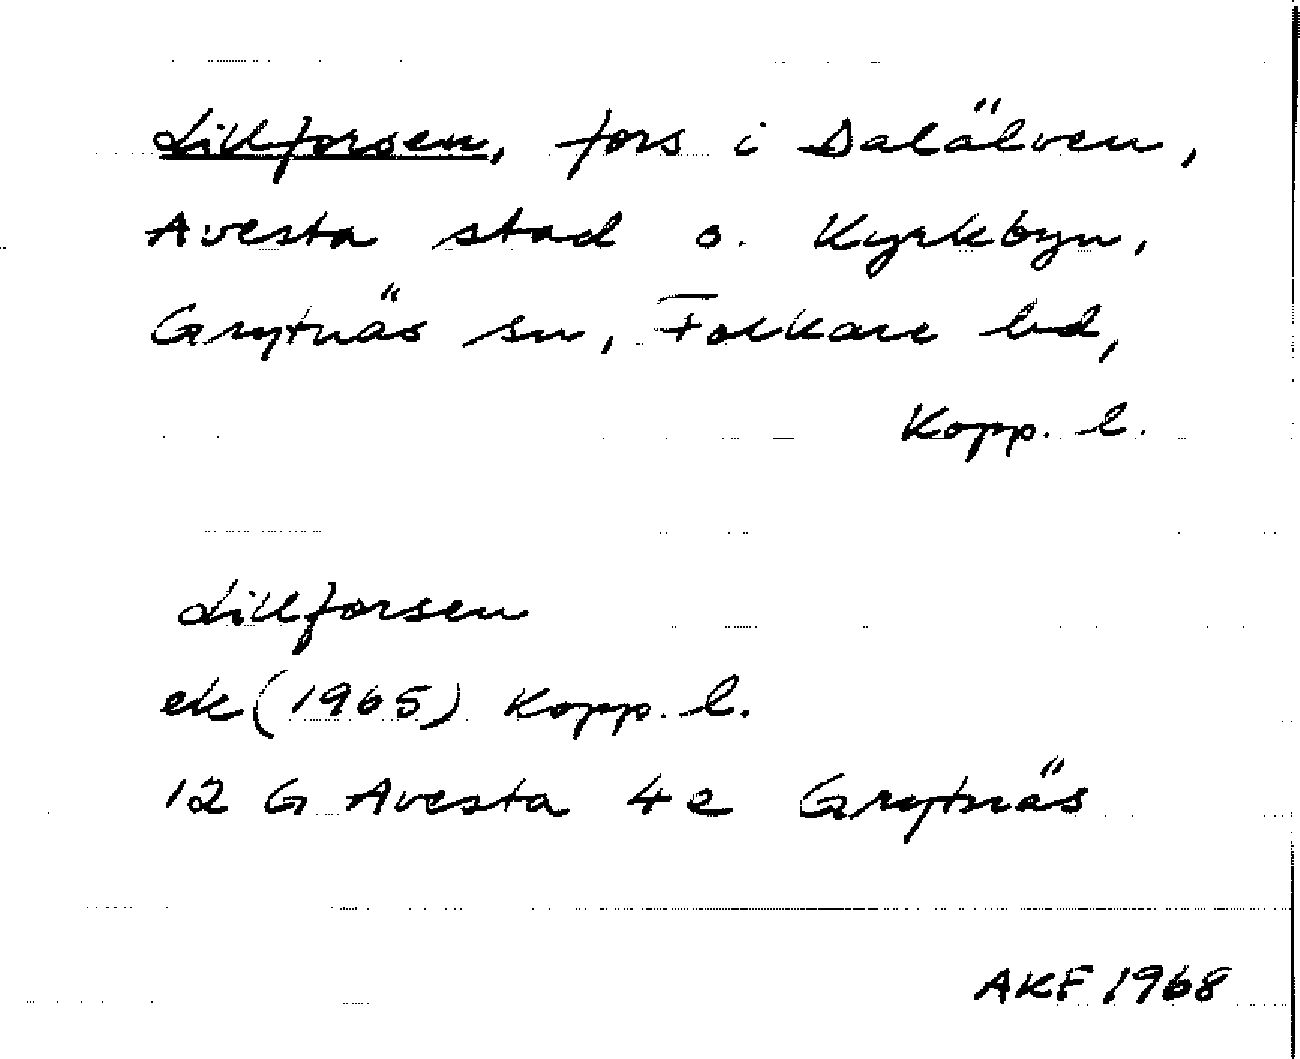 Lillforsen, fors i Dalälven,
Avesta stad o. Kyrkbyn,
Grytnäs sn, Folkare hd,
Kopp. l.
Lillforsen
ek (1965) Kopp. l.
12 G Avesta 4 e Grytnäs
AKF 1968